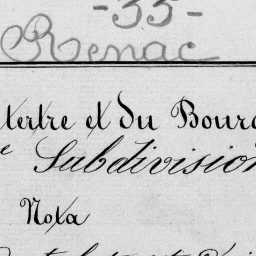 -35-
Renac
tertre et du Bourg
e Subdivision
Nota